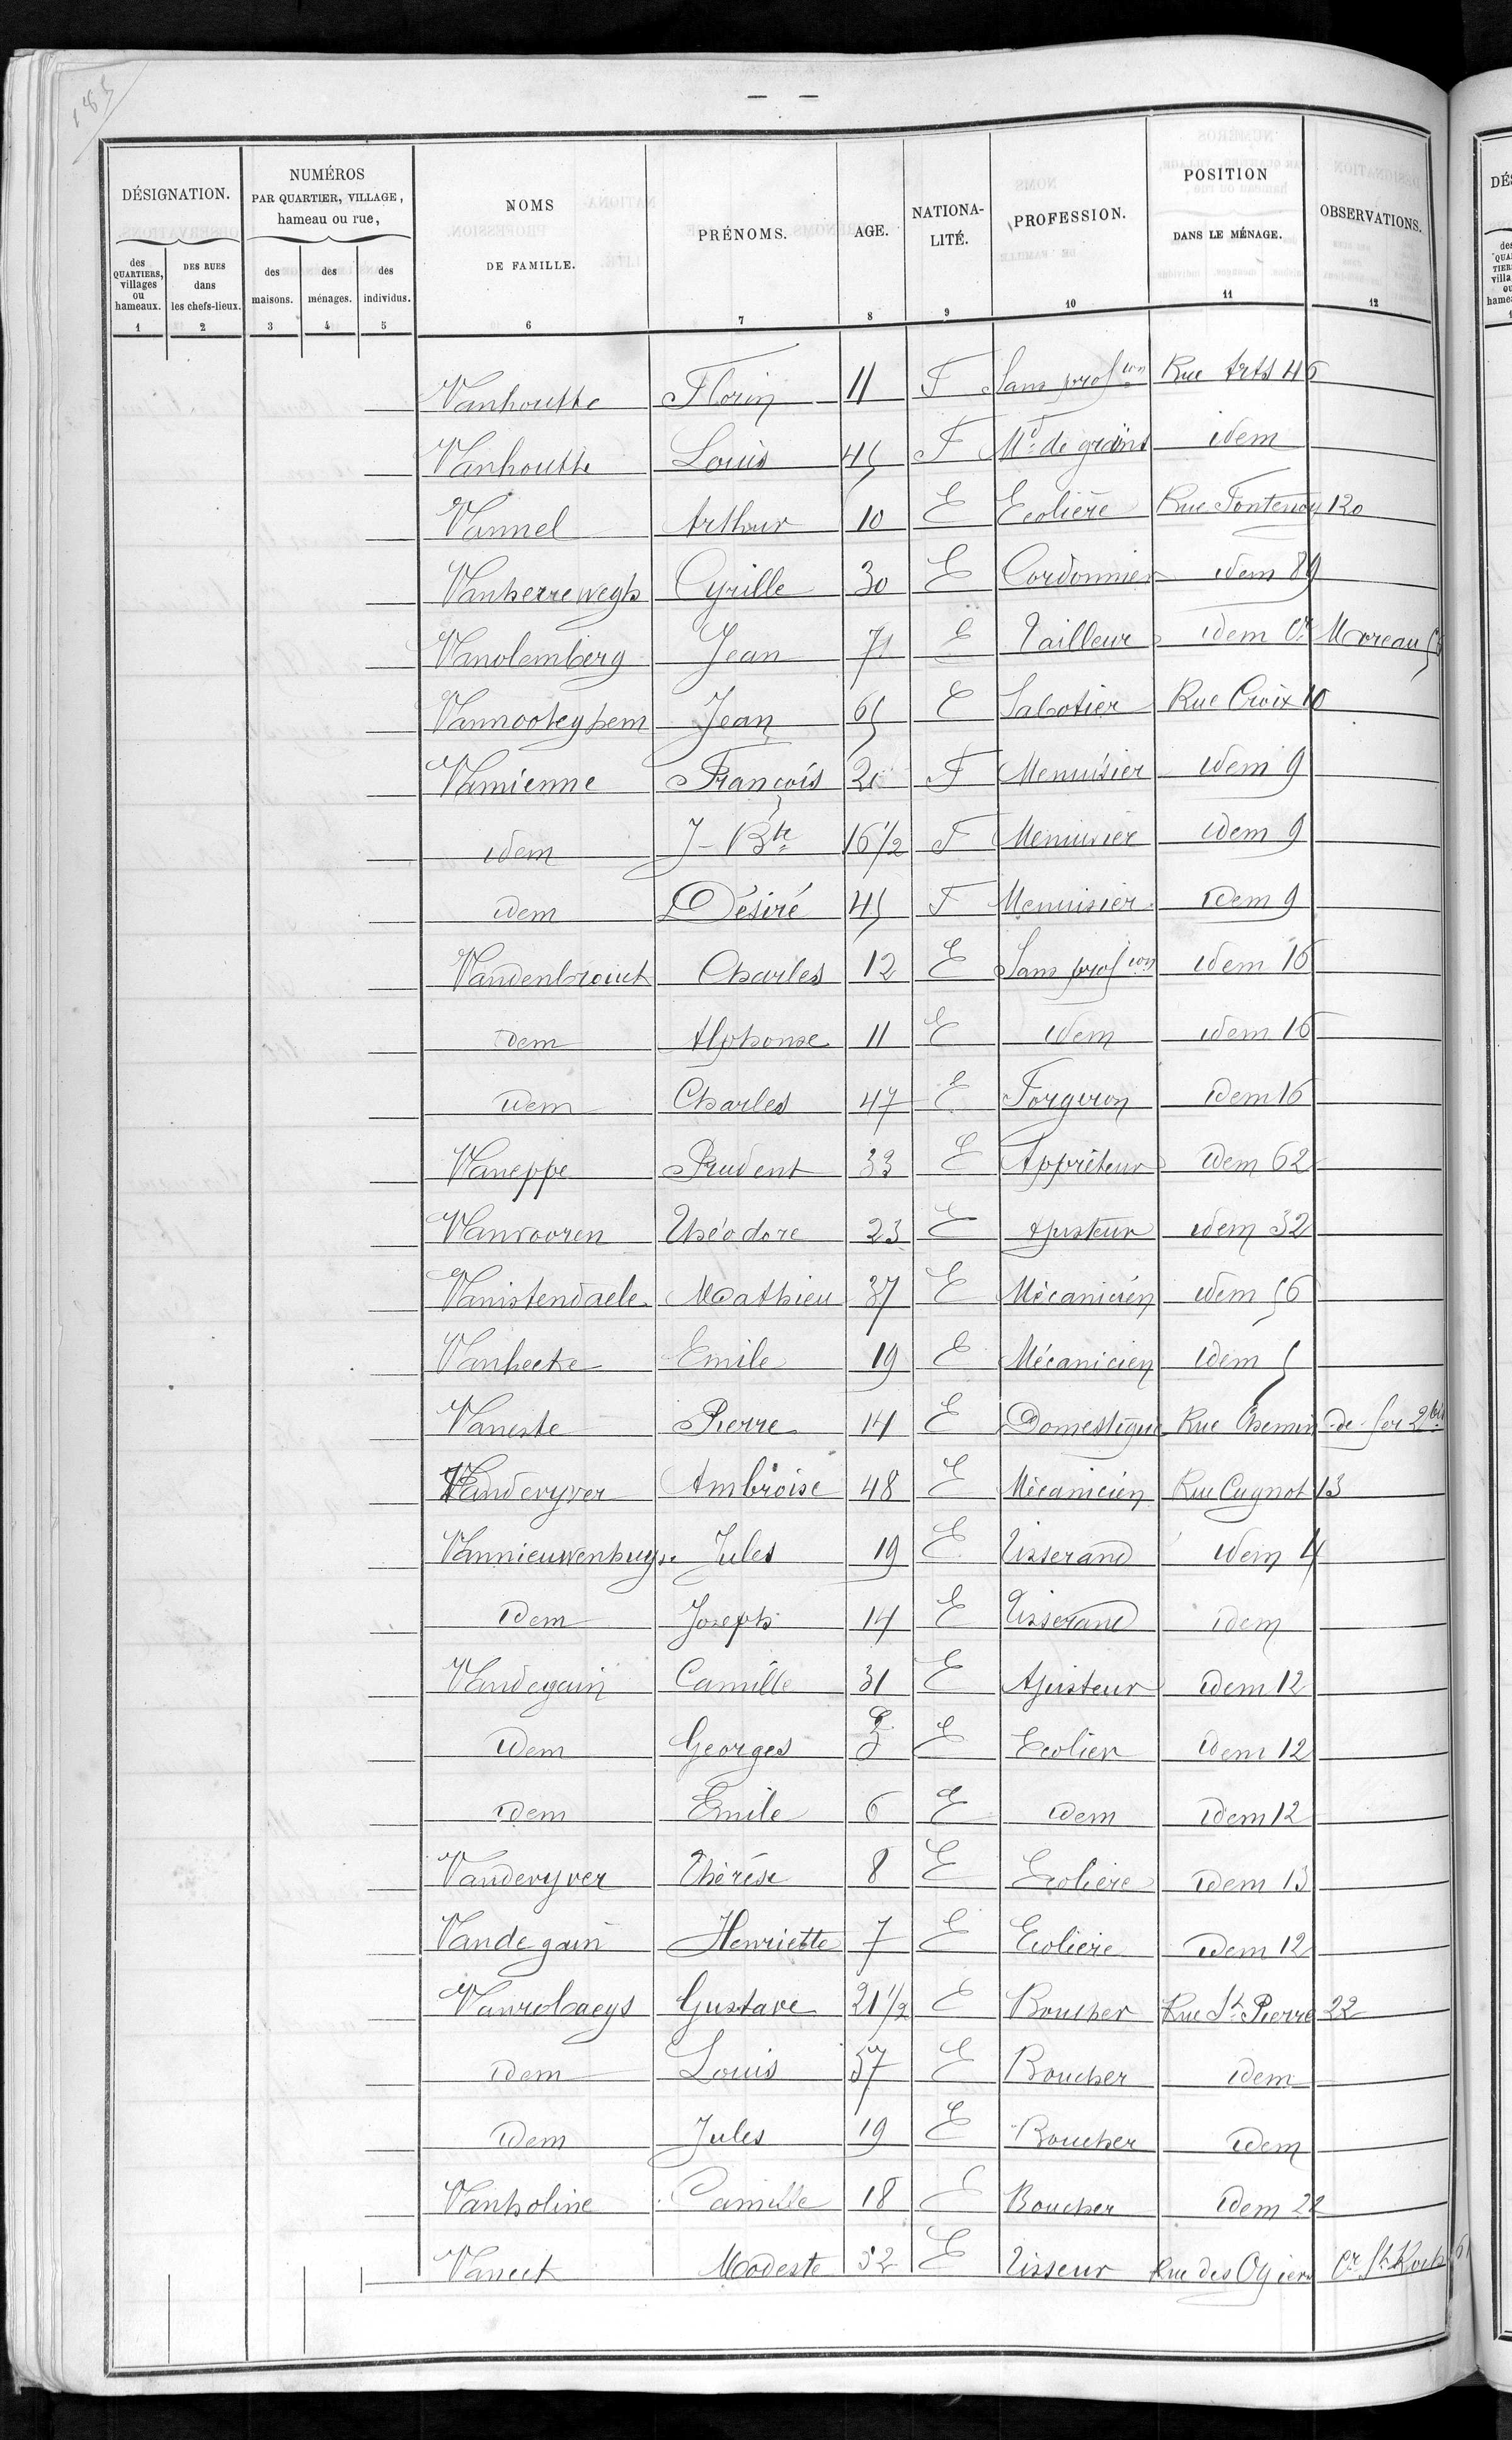 185
— —
DÉSIGNATION. NUMÉROS PAR QUARTIER, VILLAGE, hameau ou rue, NOMS DE FAMILLE. PRÉNOMS. AGE. NATIONA-LITÉ. PROFESSION. POSITION DANS LE MÉNAGE. OBSERVATIONS.
des QUARTIERS, villages ou hameaux. DES RUES dans les chefs-lieux. des maisons. des ménages. des individus.
1 2 3 4 5 6 7 8 9 10 11 12
Vanhoutte Florin 11 F Sans prof.ion Rue Arts 46
Vanhoutte Louis 45 F Md de grains idem
Vannel Arthur 10 E Ecolière Rue Fontenoy 120
Vanherrewegh Cyrille 30 E Cordonnier idem 89
Vanolemberg Jean 71 E Tailleur idem Cr Moreau
Vannooteghem Jean 65 E Sabotier Rue Croix 10
Vamienne François 20 F Menuisier idem 9
idem J-Bte 16 1/2 F Menuisier idem 9
idem Désiré 45 F Menuisier idem 9
Vandenbrouck Charles 12 E Sans prof.ion idem 16
idem Alphonse 11 E idem idem 16
idem Charles 47 E Forgeron idem 16
Vaneppe Prudent 33 E Apprêteur idem 62
Vanvooren Théodore 23 E Ajusteur idem 32
Vanistendaele Mathieu 37 E Mécanicien idem 56
Vanhecke Emile 19 E Mécanicien idem 5
Vaneste Pierre 14 E Domestique Rue Chemin de fer 2bis
Vandevyver Ambroise 48 E Mécanicien Rue Cugnot 13
Vannieuwenhuyse Jules 19 E Tisserand idem 4
idem Joseph 14 E Tisserand idem
Vandegain Camille 31 E Ajusteur idem 12
idem Georges E Ecolier idem 12
idem Emile 6 E idem idem 12
Vandevyver Thérèse 8 E Ecolière idem 13
Vandegain Henriette 7 E Ecolière idem 12
Vanrobaeys Gustave 21 1/2 E Boucher Rue St Pierre 22
idem Louis 57 E Boucher idem
idem Jules 19 E Boucher idem
Vanholine Camille 18 E Boucher idem 22
Vaneck Modeste 52 E Tisseur Rue des Ogiers Cr St Roch